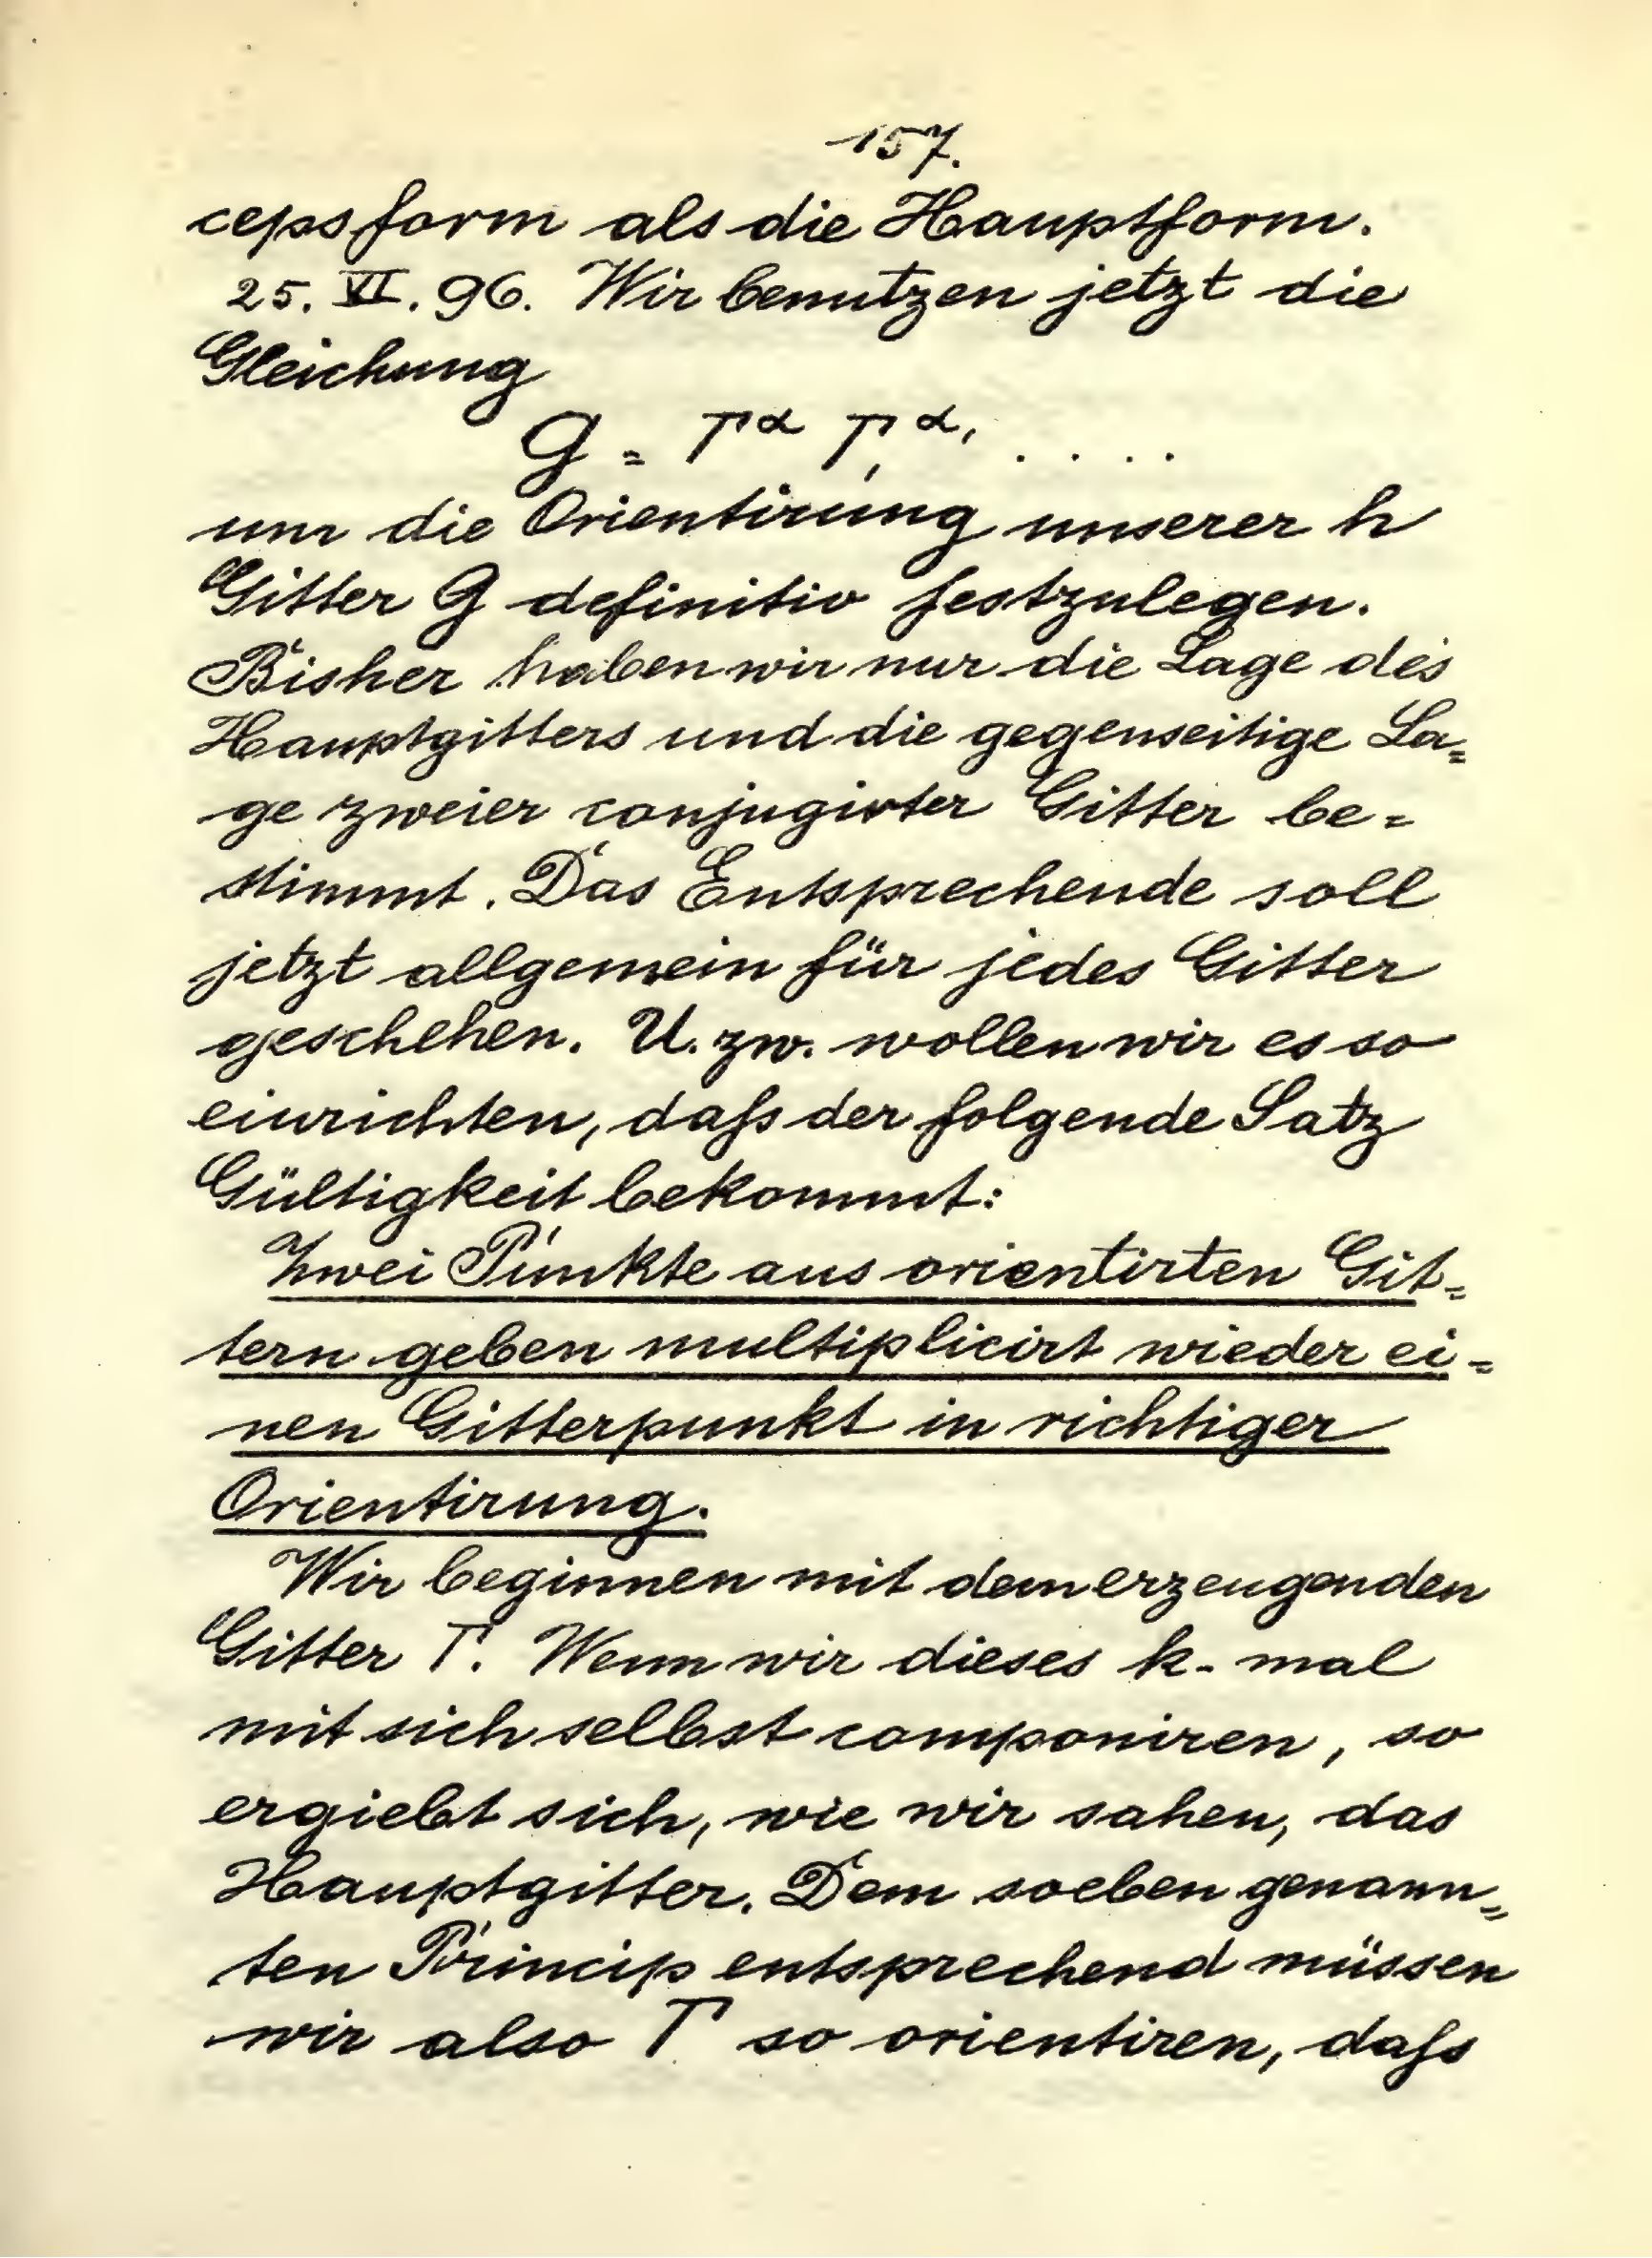 157.
cepsform als die Hauptform.
25. VI. 96. Wir benutzen jetzt die
Gleichung
G = Γ^α Γ₁^α₁ . . . .
um die Orientirung unserer h
Gitter G definitiv festzulegen.
Bisher haben wir nur die Lage des
Hauptgitters und die gegenseitige La=
ge zweier conjugirter Gitter be=
stimmt. Das Entsprechende soll
jetzt allgemein für jedes Gitter
geschehen. U. zw. wollen wir es so
einrichten, daſs der folgende Satz
Gültigkeit bekommt:
Zwei Punkte aus orientirten Git=
tern geben multiplicirt wieder ei=
nen Gitterpunkt in richtiger
Orientirung.
Wir beginnen mit dem erzeugenden
Gitter Γ. Wenn wir dieses k-mal
mit sich selbst componiren, so
ergiebt sich, wie wir sahen, das
Hauptgitter. Dem soeben genann=
ten Princip entsprechend müssen
wir also Γ so orientiren, daſs